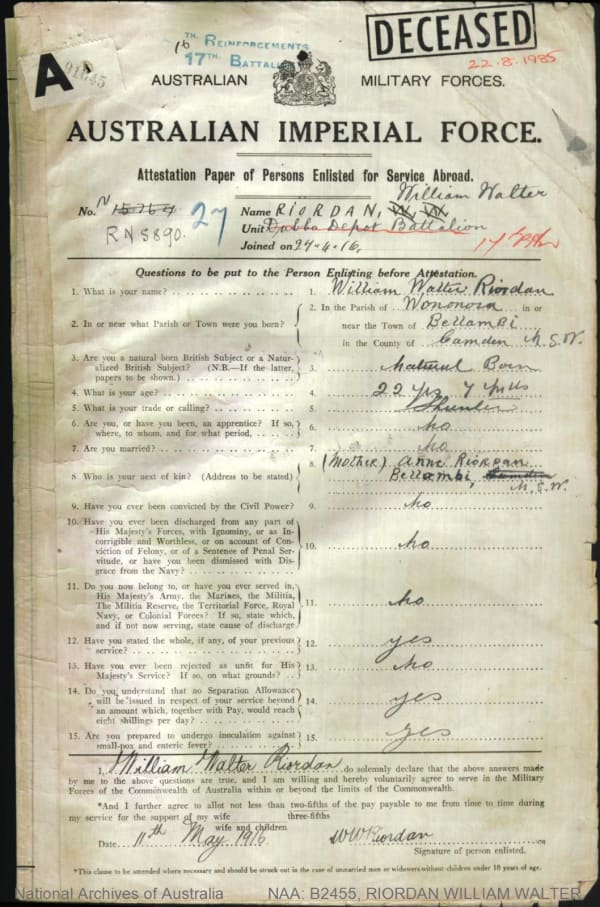 DECEASED
22.8.1985
16TH REINFORCEMENTS
17TH BATTALION
A
91045
AUSTRALIAN MILITARY FORCES.
AUSTRALIAN IMPERIAL FORCE.
Attestation Paper of Persons Enlisted for Service Abroad.
William Walter
No. N 27 Name RIORDAN, W. W.
RN5890. Unit Dubbo Depot Battalion
Joined on 27.4.16.
Questions to be put to the Person Enlisting before Attestation.
1. What is your name? 1. William Walter Riordan
2. In or near what Parish or Town were you born? 2. In the Parish of Wononora in or
near the Town of Bellambi
in the County of Camden N.S.W.
3. Are you a natural born British Subject or a Natur-
alized British Subject? (N.B.—If the latter, 3. Natural Born
papers to be shown.)
4. What is your age? 4. 22 yrs 7 mths
5. What is your trade or calling? 5. Shunter
6. Are you, or have you been, an apprentice? If so, 6. No
where, to whom, and for what period,
7. Are you married? 7. No
8 Who is your next of kin? (Address to be stated) 8. (Mother) Anne Riordan
Bellambi, Camden
N.S.W.
9. Have you ever been convicted by the Civil Power? 9. No
10. Have you ever been discharged from any part of
His Majesty's Forces, with Ignominy, or as In-
corrigible and Worthless, or on account of Con-
viction of Felony, or of a Sentence of Penal Ser- 10. No
vitude, or have you been Dismissed with Dis-
grace from the Navy?
11. Do you now belong to, or have you ever served in,
His Majesty's Army, the Marines, the Militia,
The Militia Reserve, the Territorial Force, Royal 11. No
Navy, or Colonial Forces? If so, state which,
and if not now serving, state cause of discharge
12. Have you stated the whole, if any, of your previous
service? 12. yes
13. Have you ever been rejected as unfit for His
Majesty's Service? If so, on what grounds? 13. No
14. Do you understand that no Separation Allowance
will be issued in respect of your service beyond 14. yes
an amount which, together with Pay, would reach
eight shillings per day?
15. Are you prepared to undergo inoculation against
small-pox and enteric fever? 15. Yes
I, William Walter Riordan do solemnly declare that the above answers made
by me to the above questions are true, and I am willing and hereby voluntarily agree to serve in the Military
Forces of the Commonwealth of Australia within or beyond the limits of the Commonwealth.
*And I further agree to allot not less than two-fifths of the pay payable to me from time to time during
three-fifths
my service for the support of my wife
wife and children
Date 11th May 1916 WWRiordan
Signature of person enlisted.
*This clause to be amended where necessary and should be struck out in the case of unmarried men or widowers without children under 18 years of age.
National Archives of Australia NAA: B2455, RIORDAN WILLIAM WALTER